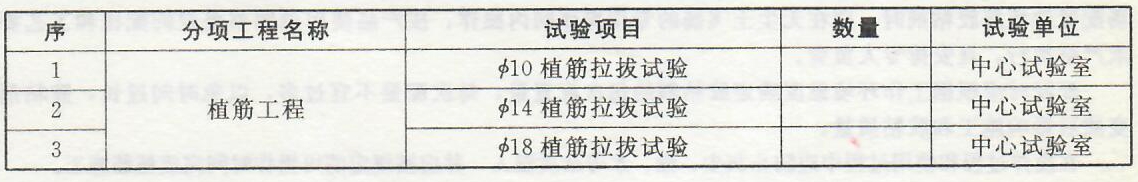 序 分项工程名称 试验项目 数量 试验单位
1 植筋工程 ϕ10植筋拉拔试验 中心试验室
2 ϕ14植筋拉拔试验 中心试验室
3 ϕ18植筋拉拔试验 中心试验室